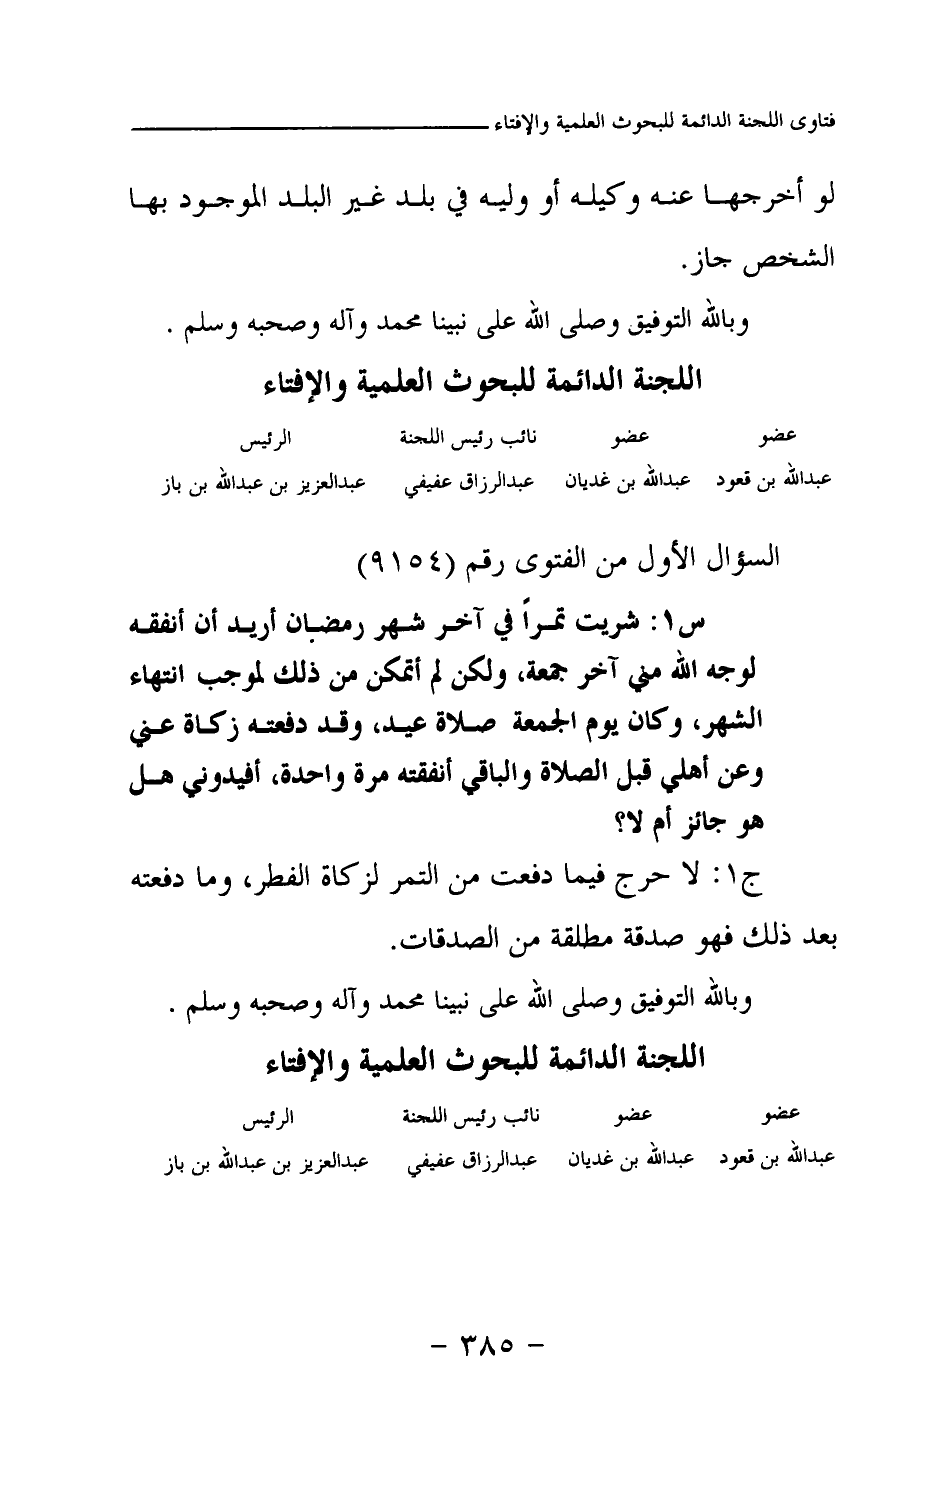 فتاوى اللجنة الدائمة للبحوث العلمية والإفتاء
لو أخرجها عنه وكيله أو وليه في بلد غير البلد الموجود بها
الشخص جاز.
وبالله التوفيق وصلى الله على نبينا محمد وآله وصحبه وسلم .
اللجنة الدائمة للبحوث العلمية والإفتاء
عضو عضو نائب رئيس اللجنة الرئيس
عبدالله بن قعود عبدالله بن غديان عبدالرزاق عفيفي عبدالعزيز بن عبدالله بن باز
السؤال الأول من الفتوى رقم (٩١٥٤)
س١: شريت تمراً في آخر شهر رمضان أريد أن أنفقه
لوجه الله مني آخر جمعة، ولكن لم أتمكن من ذلك لموجب انتهاء
الشهر، وكان يوم الجمعة صلاة عيد، وقد دفعته زكاة عني
وعن أهلي قبل الصلاة والباقي أنفقته مرة واحدة، أفيدوني هل
هو جائز أم لا؟
ج١: لا حرج فيما دفعت من التمر لزكاة الفطر، وما دفعته
بعد ذلك فهو صدقة مطلقة من الصدقات.
وبالله التوفيق وصلى الله على نبينا محمد وآله وصحبه وسلم .
اللجنة الدائمة للبحوث العلمية والإفتاء
عضو عضو نائب رئيس اللجنة الرئيس
عبدالله بن قعود عبدالله بن غديان عبدالرزاق عفيفي عبدالعزيز بن عبدالله بن باز
- ٣٨٥ -